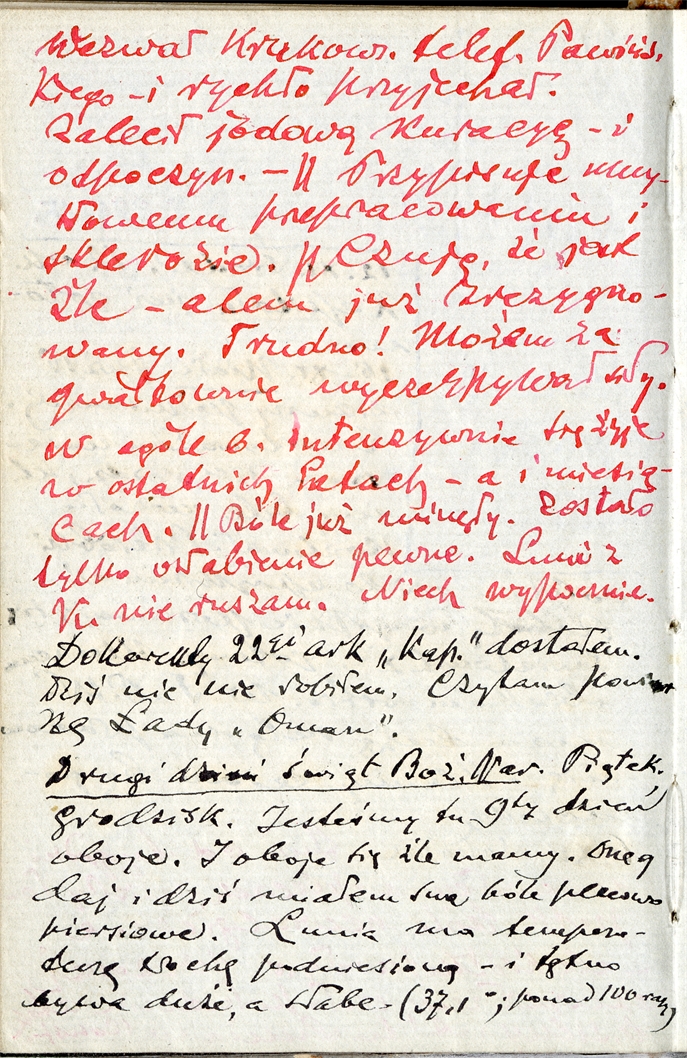 wezwał Krzykows. telef. Pawiń-
kiego - i rychło przyjechał.
Zalecił jodową kuracyę - i
odpoczyn. - || Przypisuje umy-
słowemu przepracowaniu i
sklerozie. || Czuję, że jest
źle - alem już zrezygno-
wany. Trudno! Możem za
gwałtownie wyczerpywał siły.
W ogóle b. intenzywnie się żyje
w ostatnich latach - a i miesią-
cach. || Bóle już minęły. Zostało
tylko osłabienie pewne. Luni z
nie ruszam. Niech wypocznie.
22gi ark „Kap." dostałem.
Dziś nic nie robiłem. Czytam
Łady „
Drugi dzień świąt Boż. Nar. Piątek.
Grodzisk. Jesteśmy tu 9ty dzień
oboje. I oboje się źle mamy. Oneg
daj i dziś miałem swe bóle plecowo
piersiowe. Lunia ma tempera-
turę trochę podniesioną - i tętno
bywa duże, a słabe - (37,1°; ponad 100 razy)